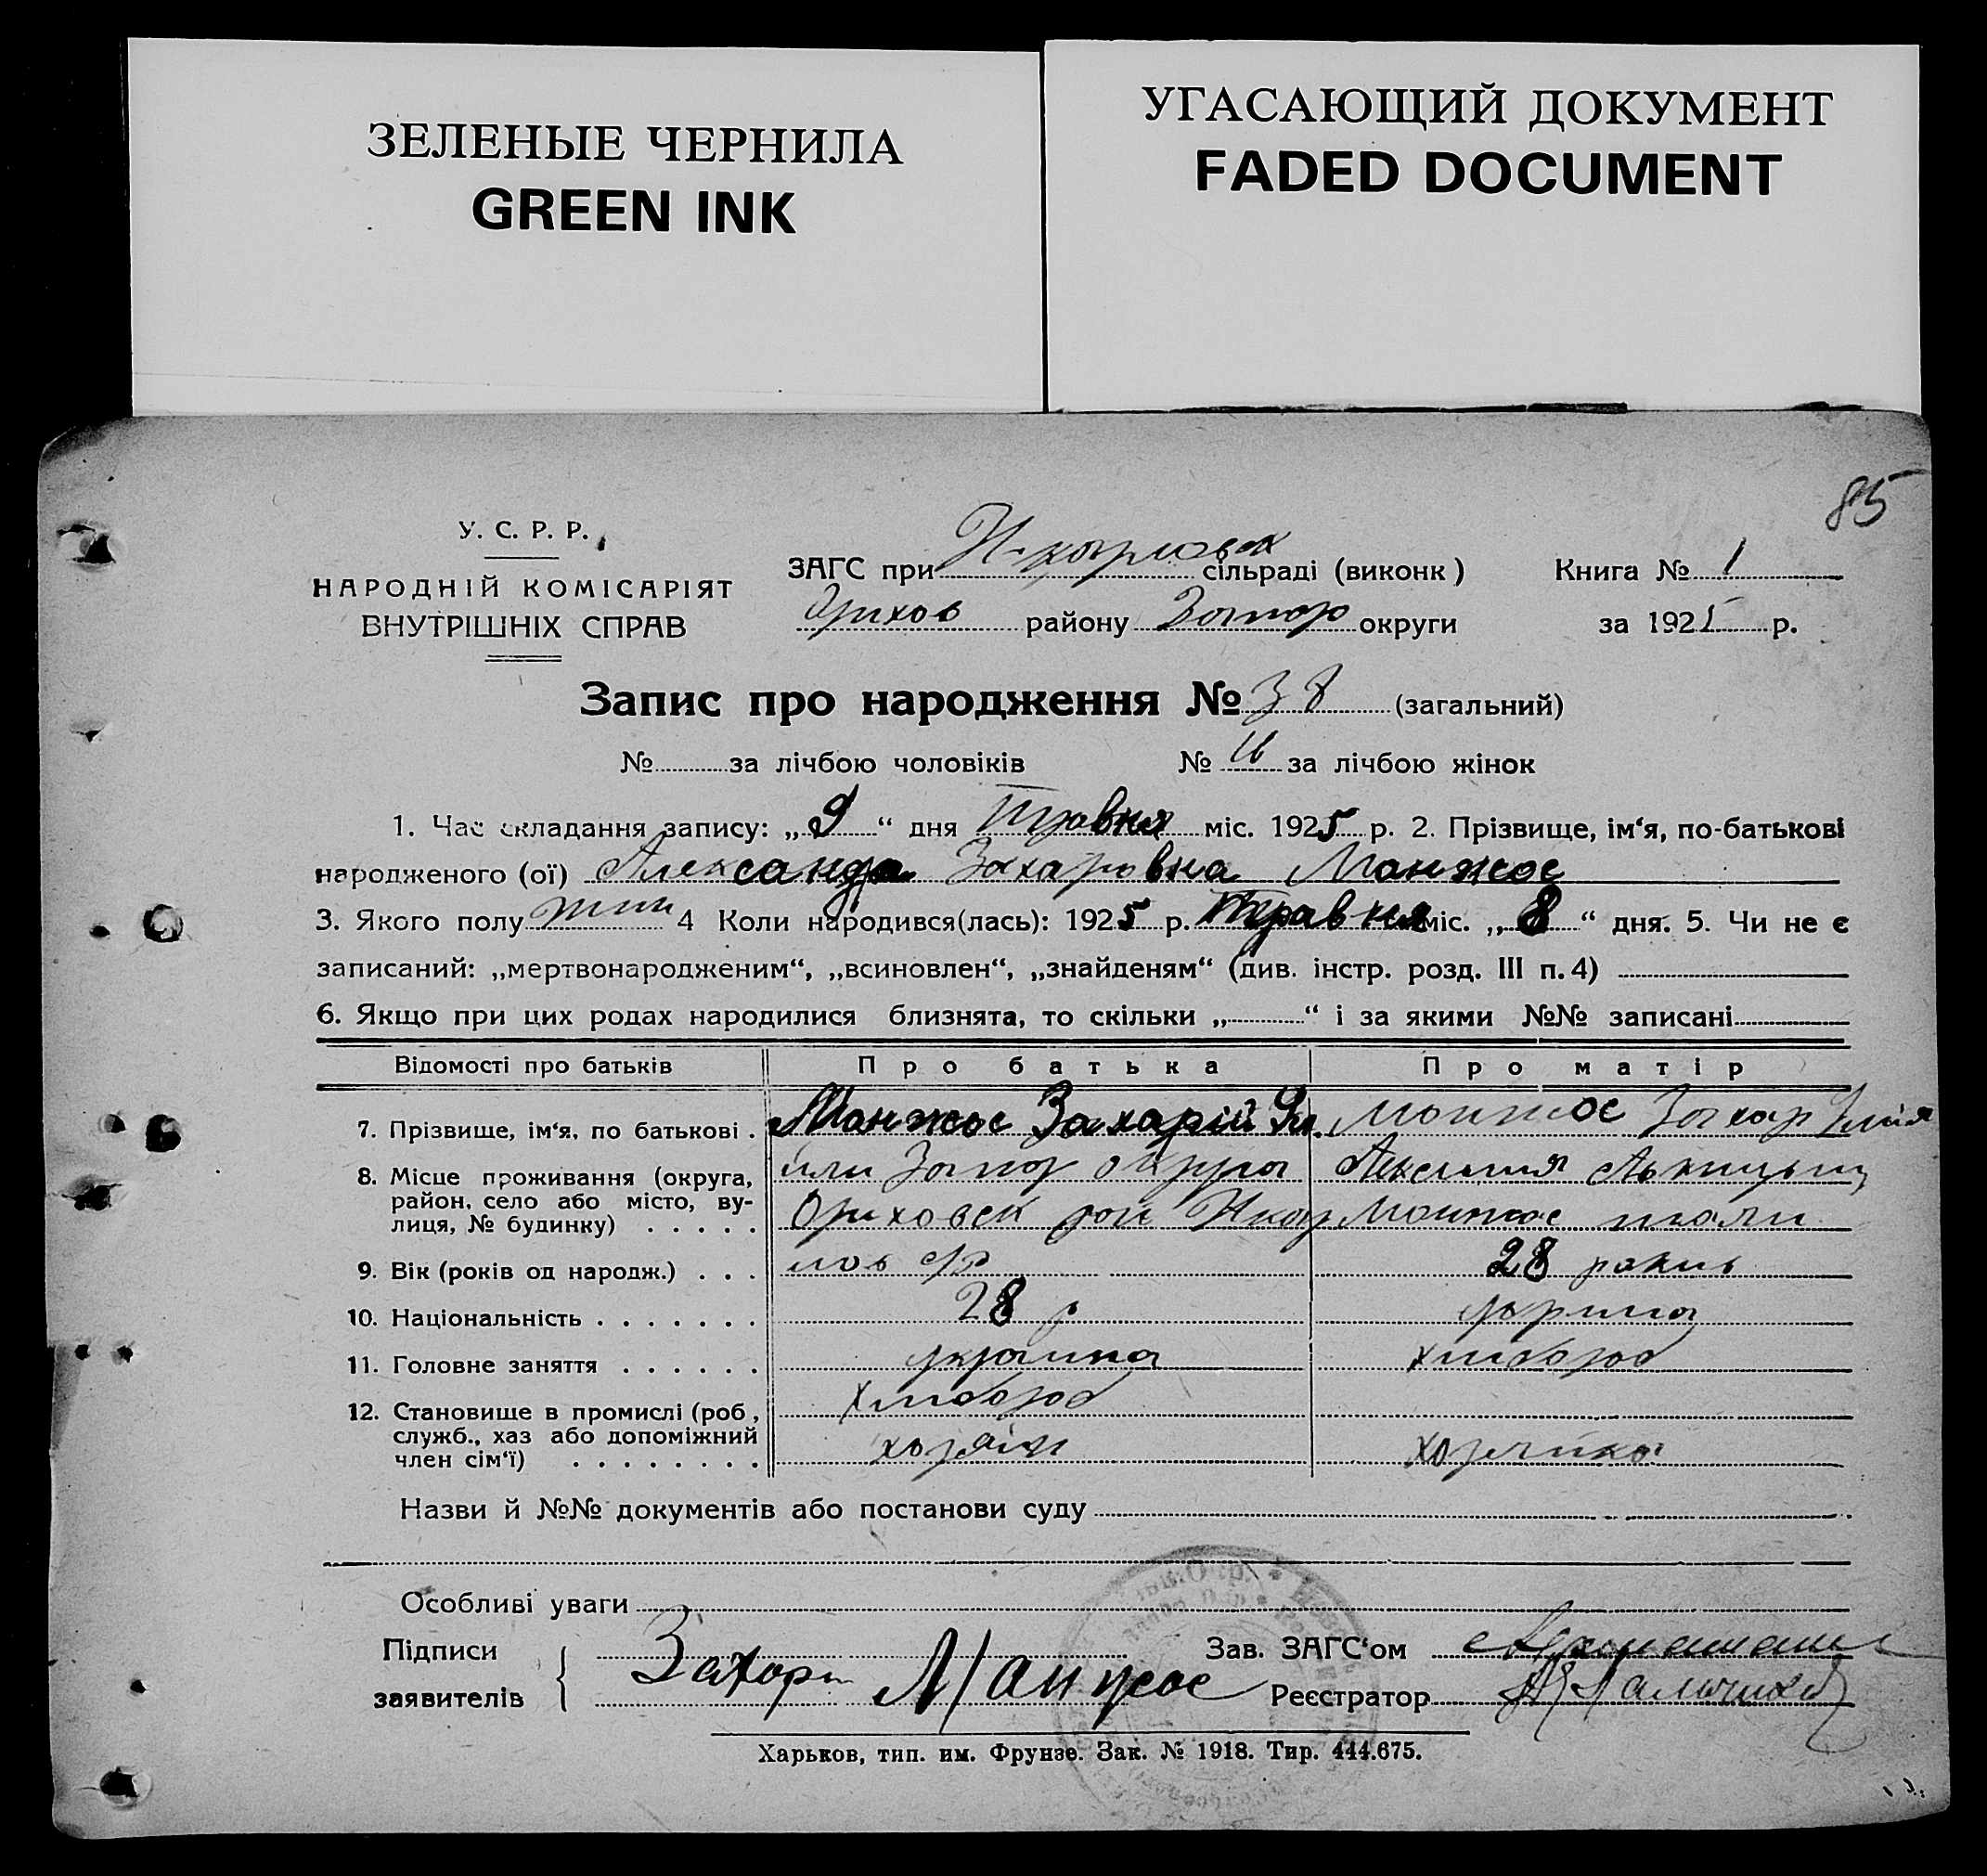 ЗЕЛЕНЫЕ ЧЕРНИЛА
GREEN INK
УГАСАЮЩИЙ ДОКУМЕНТ
FADED DOCUMENT
85
У. С. Р. Р.
НАРОДНІЙ КОМІСАРІЯТ
ВНУТРІШНІХ СПРАВ
ЗАГС при сільраді (виконк) Книга № 1
Оріхов району Запор округи за 1925 р.
Запис про народження № 38 (загальний)
№ за лічбою чоловіків № за лічбою жінок
1. Час складання запису: „9“ дня Травня міс. 1925 р. 2. Прізвище, ім‘я, по-батькові
народженого (ої) Александра Захаровна Манжос
3. Якого полу жин 4 Коли народився(лась): 1925 р. Травня міс. „8“ дня. 5. Чи не є
записаний: „мертвонародженим“, „всиновлен“, „знайденям“ (див. інстр. розд. III п. 4)
6. Якщо при цих родах народилися близнята, то скільки „ “ і за якими №№ записані
Відомості про батьків Про батька Про матір
7. Прізвище, ім‘я, по батькові . Манжос Захарій Манжос Захар
8. Місце проживання (округа, Запор округа
район, село або місто, ву- Ориховск рай Манжос
лиця, № будинку) . . . . .
9. Вік (років од народж.) . . . 28
10. Національність . . . . . . . 28 р
11. Головне заняття . . . . . . украина хлибороб
12. Становище в промислі (роб, хлибороб
служб., хаз або допоміжний
член сім‘ї) . . . . . . . . хозяїн хозяйка
Назви й №№ документів або постанови суду
Особливі уваги
Підписи Зав. ЗАГС‘ом
заявителів Захар Манжос Реєстратор
Харьков, тип. им. Фрунзе. Зак. № 1918. Тир. 444.675.